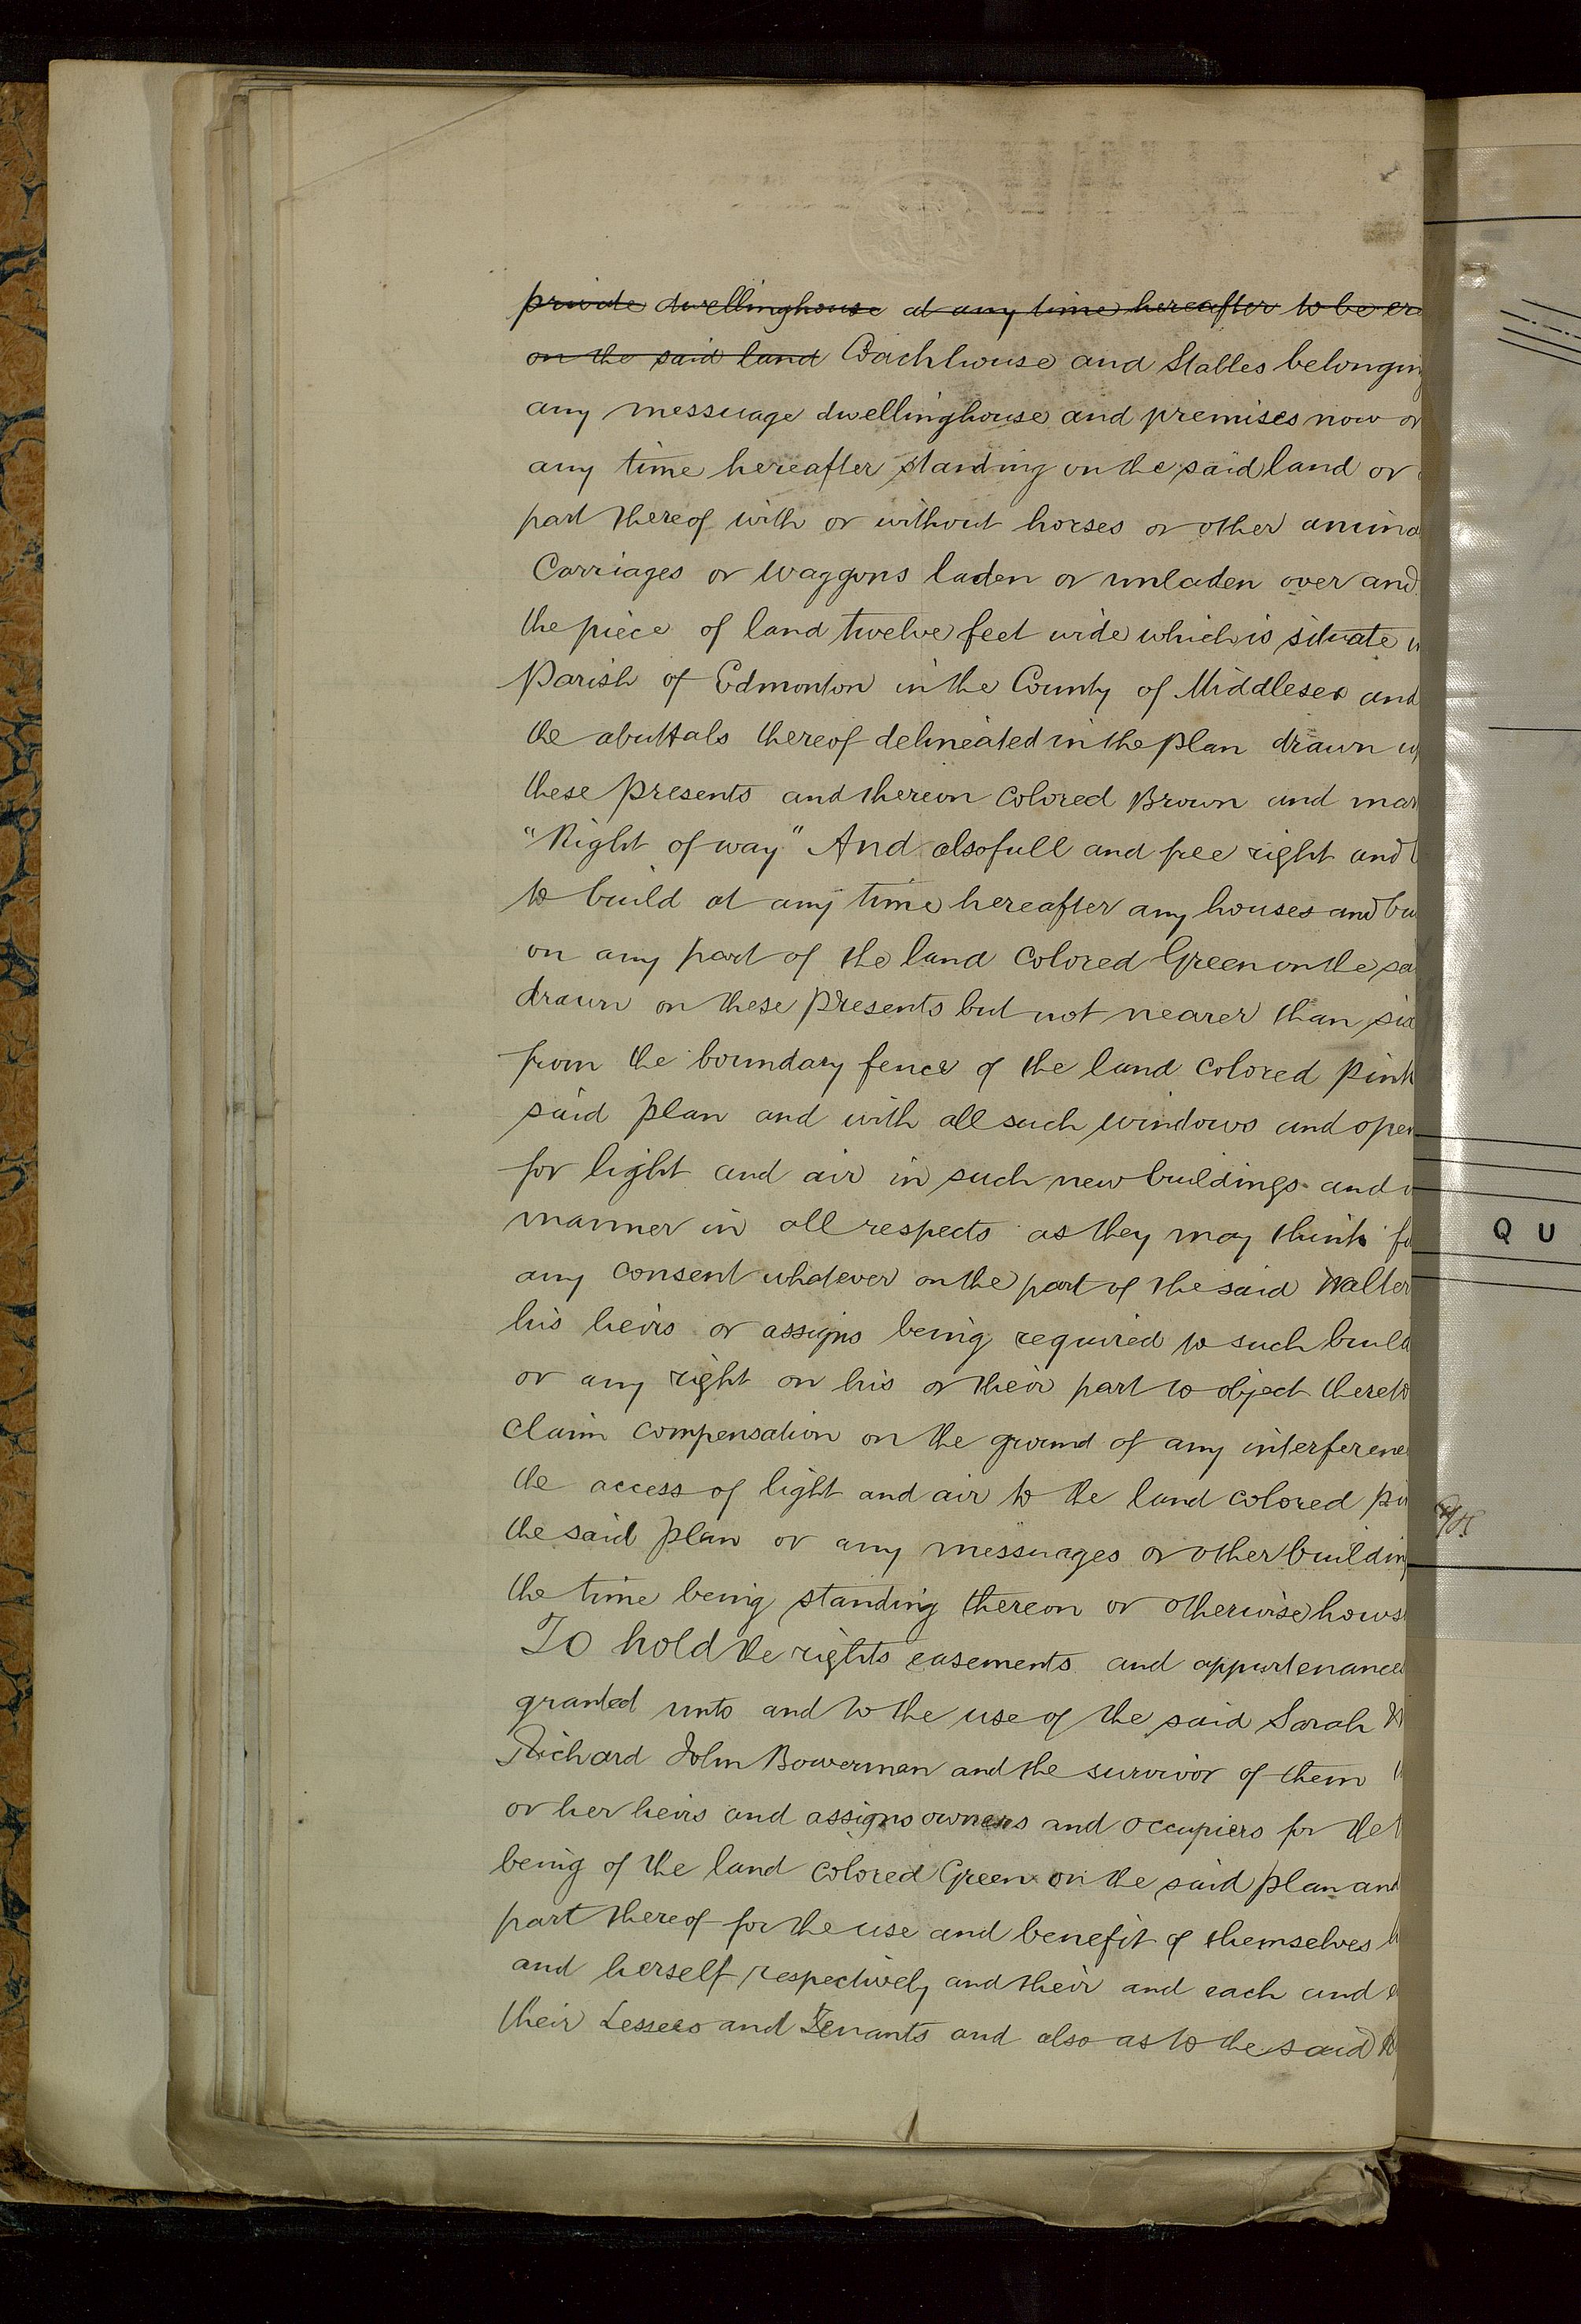 private dwellinghouse at any time hereafter to be er
on the said land Coachhouse and Stables belonging
any messuage dwellinghouse and premises now or
any time hereafter standing on the said land or
part thereof with or without horses or other anima
Carriages or Waggons laden or unladen over and
the piece of land twelve feet wide which is situate
Parish of Edmonton in the County of Middlesex and
the abuttals thereof delineated in the plan drawn
these presents and thereon Colored Brown and mar
"Right of way" And also full and free right and
to build at any time hereafter any houses and bu
on any part of the land Colored Green on the sa
drawn on these presents but not nearer than six
from the boundary fence of the land colored pink
said plan and with all such windows and open
for light and air in such new buildings and
manner in all respects as they may think
any consent whatever on the part of the said Walter
his heirs or assigns being required to such build
or any right on his or their part to object thereto
claim compensation on the ground of any interferen
the access of light and air to the land colored pi
the said plan or any messuages or other building
the time being standing thereon or otherwise hows
To hold the rights easements and appurtenances
granted unto and to the use of the said Sarah
Richard John Bowerman and the survivor of them
or her heirs and assigns owners and occupiers for the
being of the land colored Green on the said plan and
part thereof for the use and benefit of themselves
and herself respectively and their and each and
their Lessees and Tenants and also as to the said
Q U